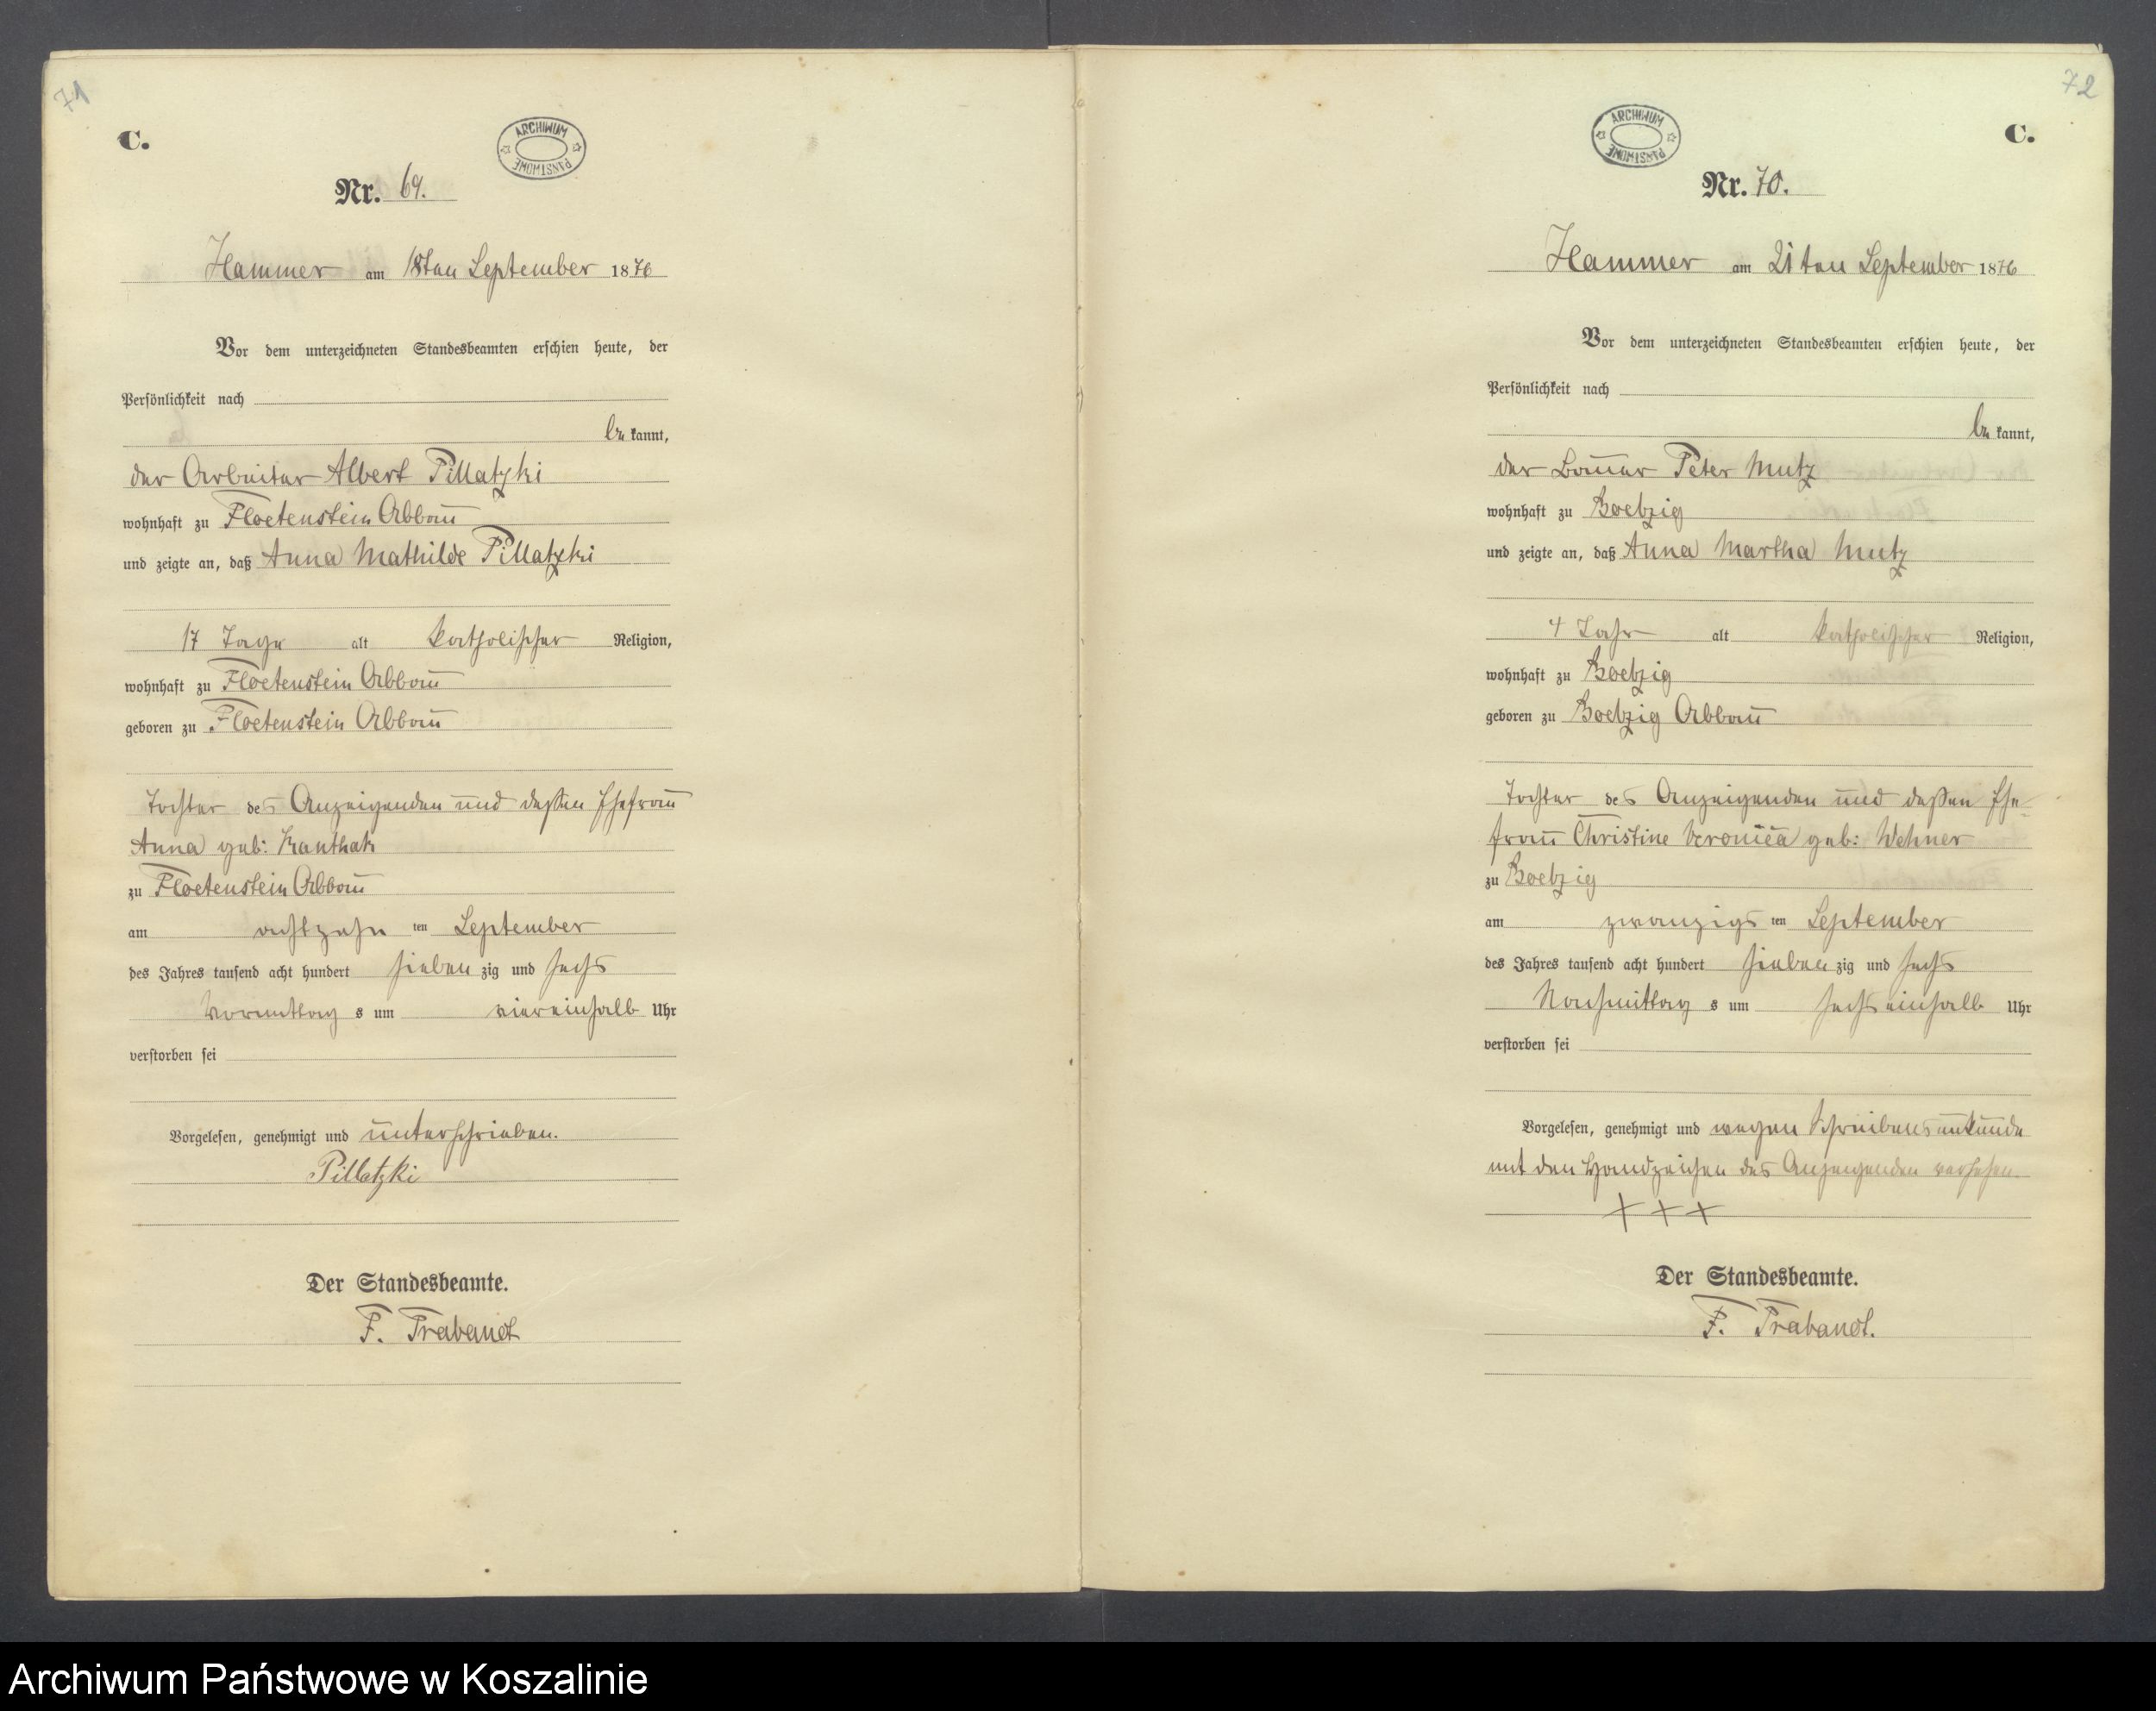 71
C.
ARCHIWUM PAŃSTWOWE
Nr. 69.
Hammer am 18ten September 1876
Vor dem unterzeichneten Standesbeamten erschien heute, der
Persönlichkeit nach
be kannt,
der Arbeiter Albert Pillatzki
wohnhaft zu Floetenstein Abbau
und zeigte an, daß Anna Mathilde Pillatzki
17 Tage alt katholischer Religion,
wohnhaft zu Floetenstein Abbau
geboren zu Floetenstein Abbau
Tochter des Anzeigenden und deßen Ehefrau
Anna geb: Kanthak
zu Floetenstein Abbau
am achtzehn ten September
des Jahres tausend acht hundert sieben zig und sechs
Vormittag s um viereinhalb Uhr
verstorben sei
Vorgelesen, genehmigt und unterschrieben.
Pillatzki
Der Standesbeamte.
F. Trabandt
72
C.
ARCHIWUM PAŃSTWOWE
Nr. 70.
Hammer am 21ten September 1876
Vor dem unterzeichneten Standesbeamten erschien heute, der
Persönlichkeit nach
be kannt,
der Bauer Peter Mutz
wohnhaft zu Boetzig
und zeigte an, daß Anna Martha Mutz
4 Jahr alt katholischer Religion,
wohnhaft zu Boetzig
geboren zu Boetzig Abbau
Tochter des Anzeigenden und deßen Ehe-
frau Christine Veronica geb: Wehner
zu Boetzig
am zwanzigs ten September
des Jahres tausend acht hundert sieben zig und sechs
Nachmittag s um sechseinhalb Uhr
verstorben sei
Vorgelesen, genehmigt und wegen Schreibensunkunde
mit den Handzeichen des Anzeigenden versehen.
+ + +
Der Standesbeamte.
F. Trabandt.
Archiwum Państwowe w Koszalinie